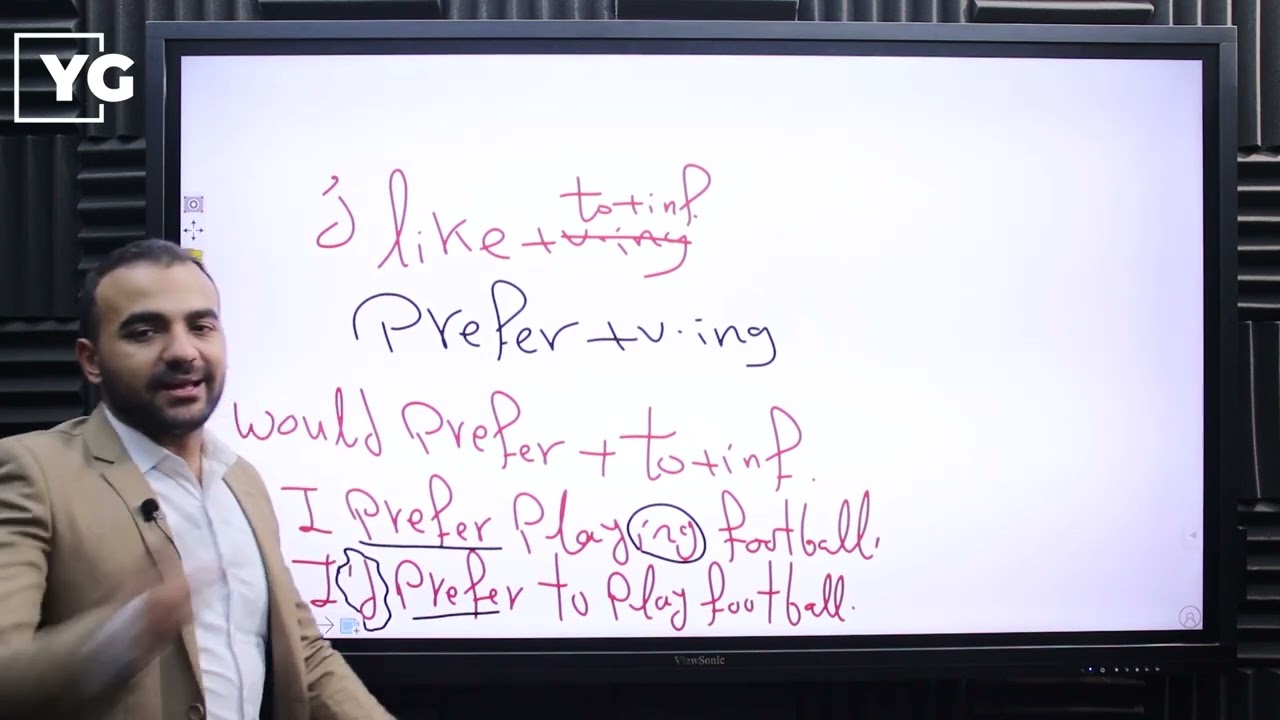 YG
to+inf.
'd like + v-ing
Prefer + v.ing
would Prefer + to+inf.
I Prefer Playing football.
I'd Prefer to Play football.
ViewSonic